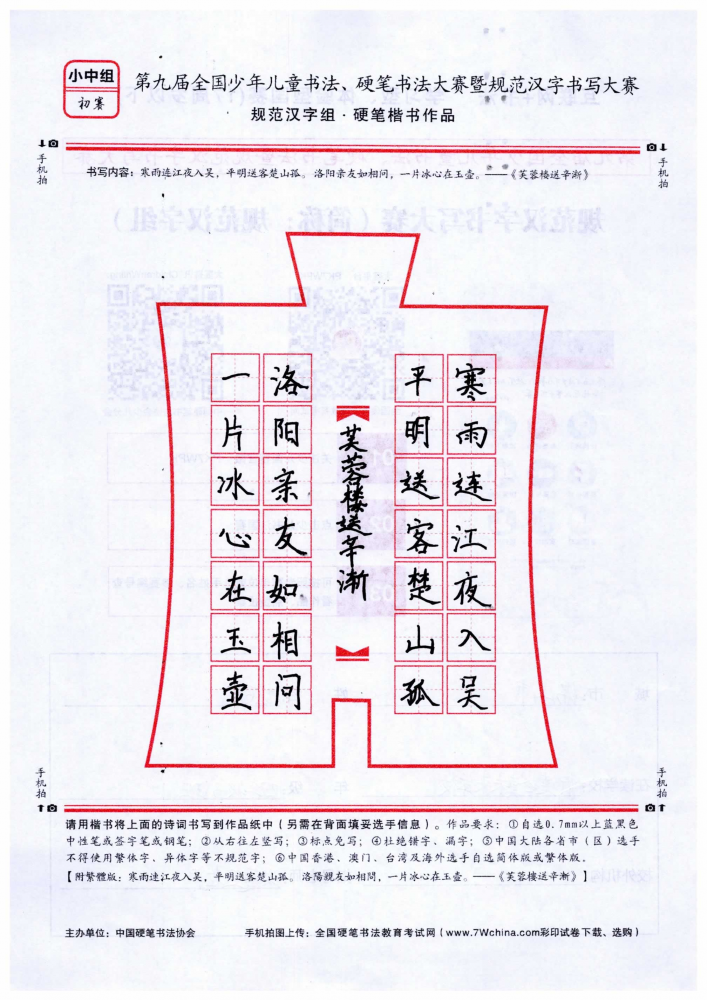 小中组
初赛
第九届全国少年儿童书法、硬笔书法大赛暨规范汉字书写大赛
规范汉字组·硬笔楷书作品
手机拍
手机拍
书写内容：寒雨连江夜入吴，平明送客楚山孤。洛阳亲友如相问，一片冰心在玉壶。——《芙蓉楼送辛渐》
寒雨连江夜入吴
平明送客楚山孤
芙蓉楼送辛渐
洛阳亲友如相问
一片冰心在玉壶
手机拍
手机拍
请用楷书将上面的诗词书写到作品纸中（另需在背面填妥选手信息）。作品要求：①自选0.7mm以上蓝黑色
中性笔或签字笔或钢笔；②从右往左竖写；③标点免写；④杜绝错字、漏字；⑤中国大陆各省市（区）选手
不得使用繁体字、异体字等不规范字；⑥中国香港、澳门、台湾及海外选手自选简体版或繁体版。
【附繁體版：寒雨連江夜入吴，平明送客楚山孤。洛陽親友如相問，一片冰心在玉壶。——《芙蓉楼送辛渐》】
主办单位：中国硬笔书法协会
手机拍图上传：全国硬笔书法教育考试网（www.7Wchina.com彩印试卷下载、选购）